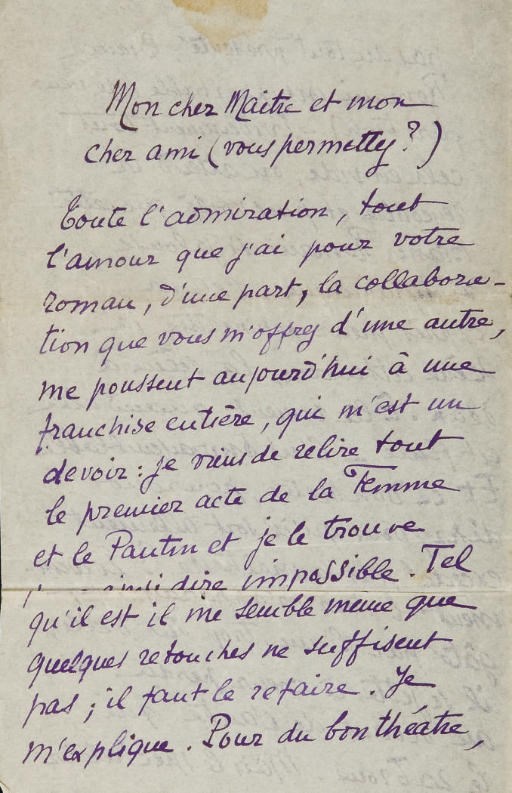 Mon cher Maitre et mon
cher ami (vous permettez?)
Toute l'admiration, tout
l'amour que j'ai pour votre
roman, d'une part, la collabora-
tion que vous m'offrez d'une autre,
me poussent aujourd'hui à une
franchise entière, qui m'est un
devoir: je viens de relire tout
le premier acte de la Femme
et le Pantin et je le trouve
ainsi dire impossible. Tel
qu'il est il me semble meme que
quelques retouches ne suffisent
pas; il faut le refaire. Je
m'explique. Pour du bon théatre,